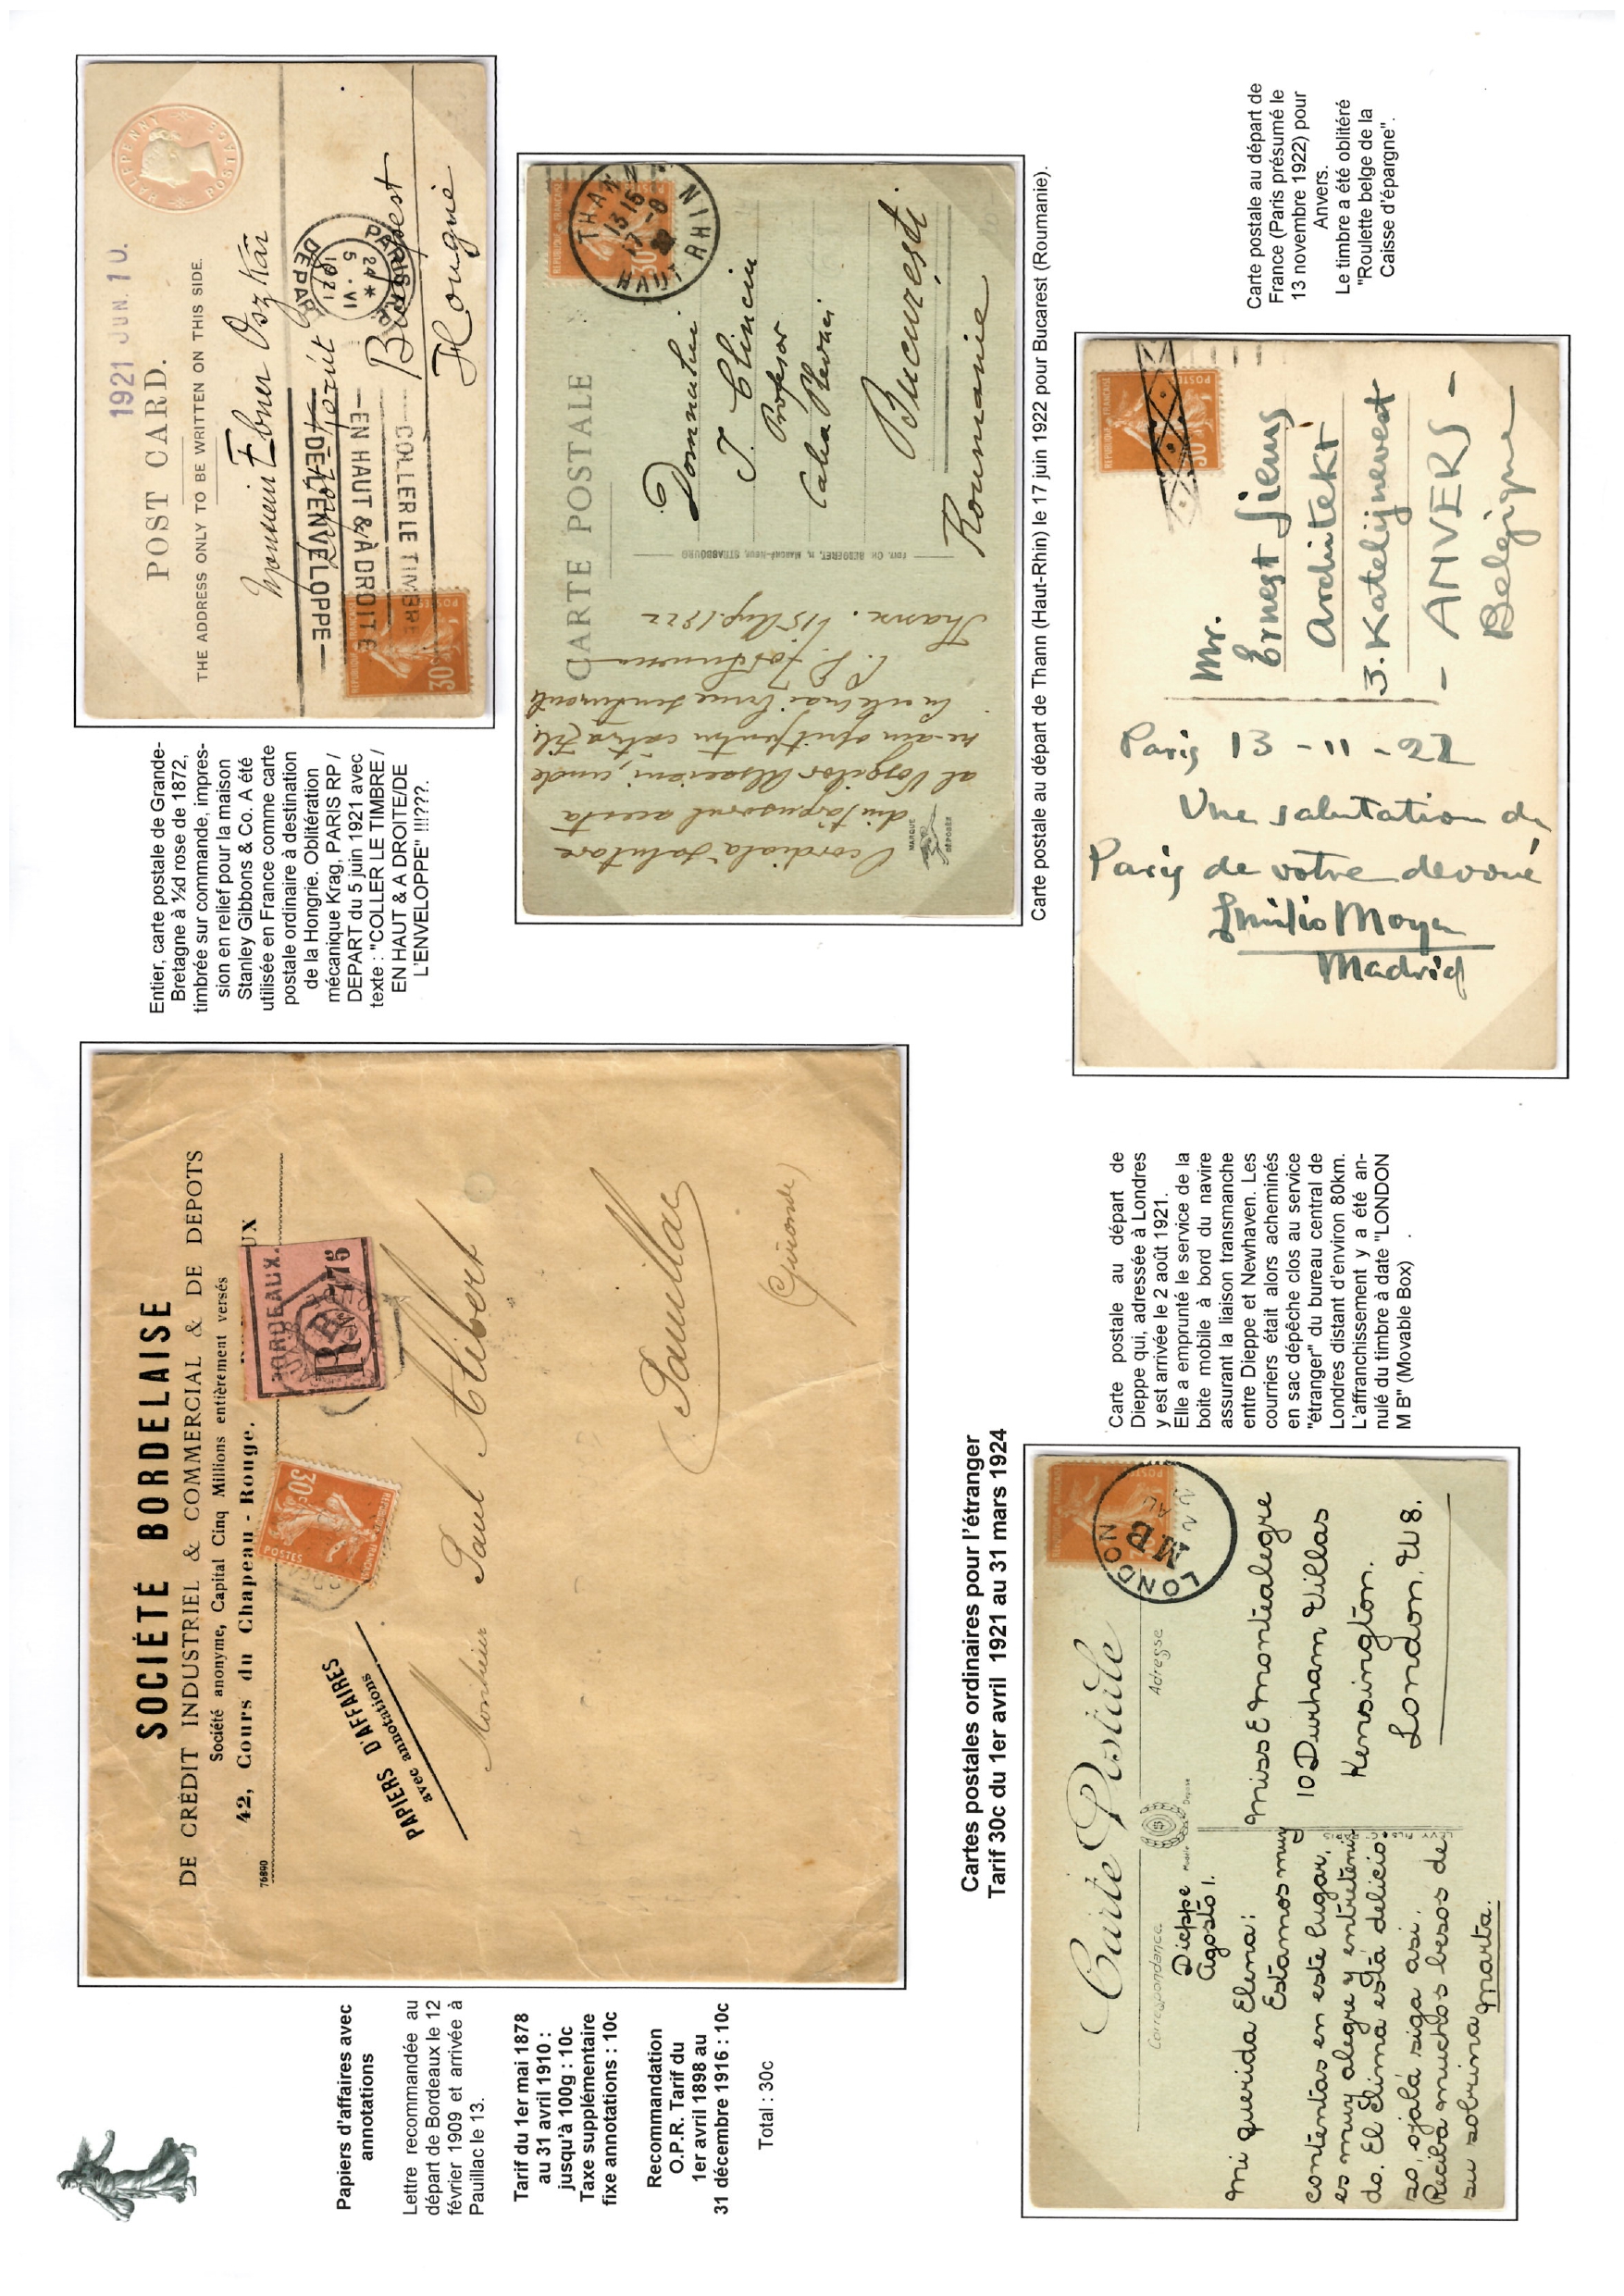 Papiers d'affaires avec
annotations
Lettre recommandée au
départ de Bordeaux le 12
février 1909 et arrivée à
Pauillac le 13.
Tarif du 1er mai 1878
au 31 avril 1910 :
jusqu'à 100g : 10c
Taxe supplémentaire
fixe annotations : 10c
Recommandation
O.P.R. Tarif du
1er avril 1898 au
31 décembre 1916 : 10c
Total : 30c
SOCIÉTÉ BORDELAISE
DE CRÉDIT INDUSTRIEL & COMMERCIAL & DE DEPOTS
Société anonyme, Capital Cinq Millions entièrement versés
42, Cours du Chapeau-Rouge. UX
76890
PAPIERS D'AFFAIRES
avec annotations
POSTES
30
BORDEAUX.
R N° 775
Monsieur Paul Alibert
Pauillac
(Gironde)
Entier, carte postale de Grande-
Bretagne à ½d rose de 1872,
timbrée sur commande, impres-
sion en relief pour la maison
Stanley Gibbons & Co. A été
utilisée en France comme carte
postale ordinaire à destination
de la Hongrie. Oblitération
mécanique Krag, PARIS RP /
DEPART du 5 juin 1921 avec
texte : "COLLER LE TIMBRE /
EN HAUT & A DROITE/DE
L'ENVELOPPE" !!!???.
1921 JUN. 10.
POST CARD.
THE ADDRESS ONLY TO BE WRITTEN ON THIS SIDE.
HALFPENNY
POSTAGE
Monsieur Ebner Oszkár
Budapest
Hongrie
PARIS R.P.
24 *
5 · VI
1921
DÉPART
COLLER LE TIMBRE
EN HAUT & À DROITE
DE L'ENVELOPPE
30
POSTES
CARTE POSTALE
THANN
13 15
17 -8
22
HAUT RHIN
Domnului
J. Clinciu
Profesor
Calea Plevnei
Bucureşti
Roumanie
EDIT. CH. BERGERET, M. MARCHÉ-NEUF, STRASBOURG
O cordială salutare
al Vosgilor Alsacieni, unde
Thann. 15 Aug. 1922
MARQUE
DÉPOSÉE
Carte postale au départ de Thann (Haut-Rhin) le 17 juin 1922 pour Bucarest (Roumanie).
Cartes postales ordinaires pour l'étranger
Tarif 30c du 1er avril 1921 au 31 mars 1924
Carte Postale
Correspondance
Adresse
LONDON
M B
2 AU
Dieppe
Agosto 1.
Mi querida Elena:
Estamos muy
contentas en este lugar,
es muy alegre y entreteni
do. El clima está delicio
so, ojalá siga asi.
Reciba muchos besos de
su sobrina Marta.
Miss E Montealegre
10 Durham Villas
Kensington.
London. W 8.
Carte postale au départ de
Dieppe qui, adressée à Londres
y est arrivée le 2 août 1921.
Elle a emprunté le service de la
boite mobile à bord du navire
assurant la liaison transmanche
entre Dieppe et Newhaven. Les
courriers était alors acheminés
en sac dépêche clos au service
"étranger" du bureau central de
Londres distant d'environ 80km.
L'affranchissement y a été an-
nulé du timbre à date "LONDON
M B" (Movable Box)
Mr.
Ernest Siens
Architekt
3. Katelijnevest
- ANVERS -
Belgique
Paris 13 - 11 - 22
Une salutation de
Paris de votre devoué
Emilio Moya
Madrid
Carte postale au départ de
France (Paris présumé le
13 novembre 1922) pour
Anvers.
Le timbre a été oblitéré
"Roulette belge de la
Caisse d'épargne".